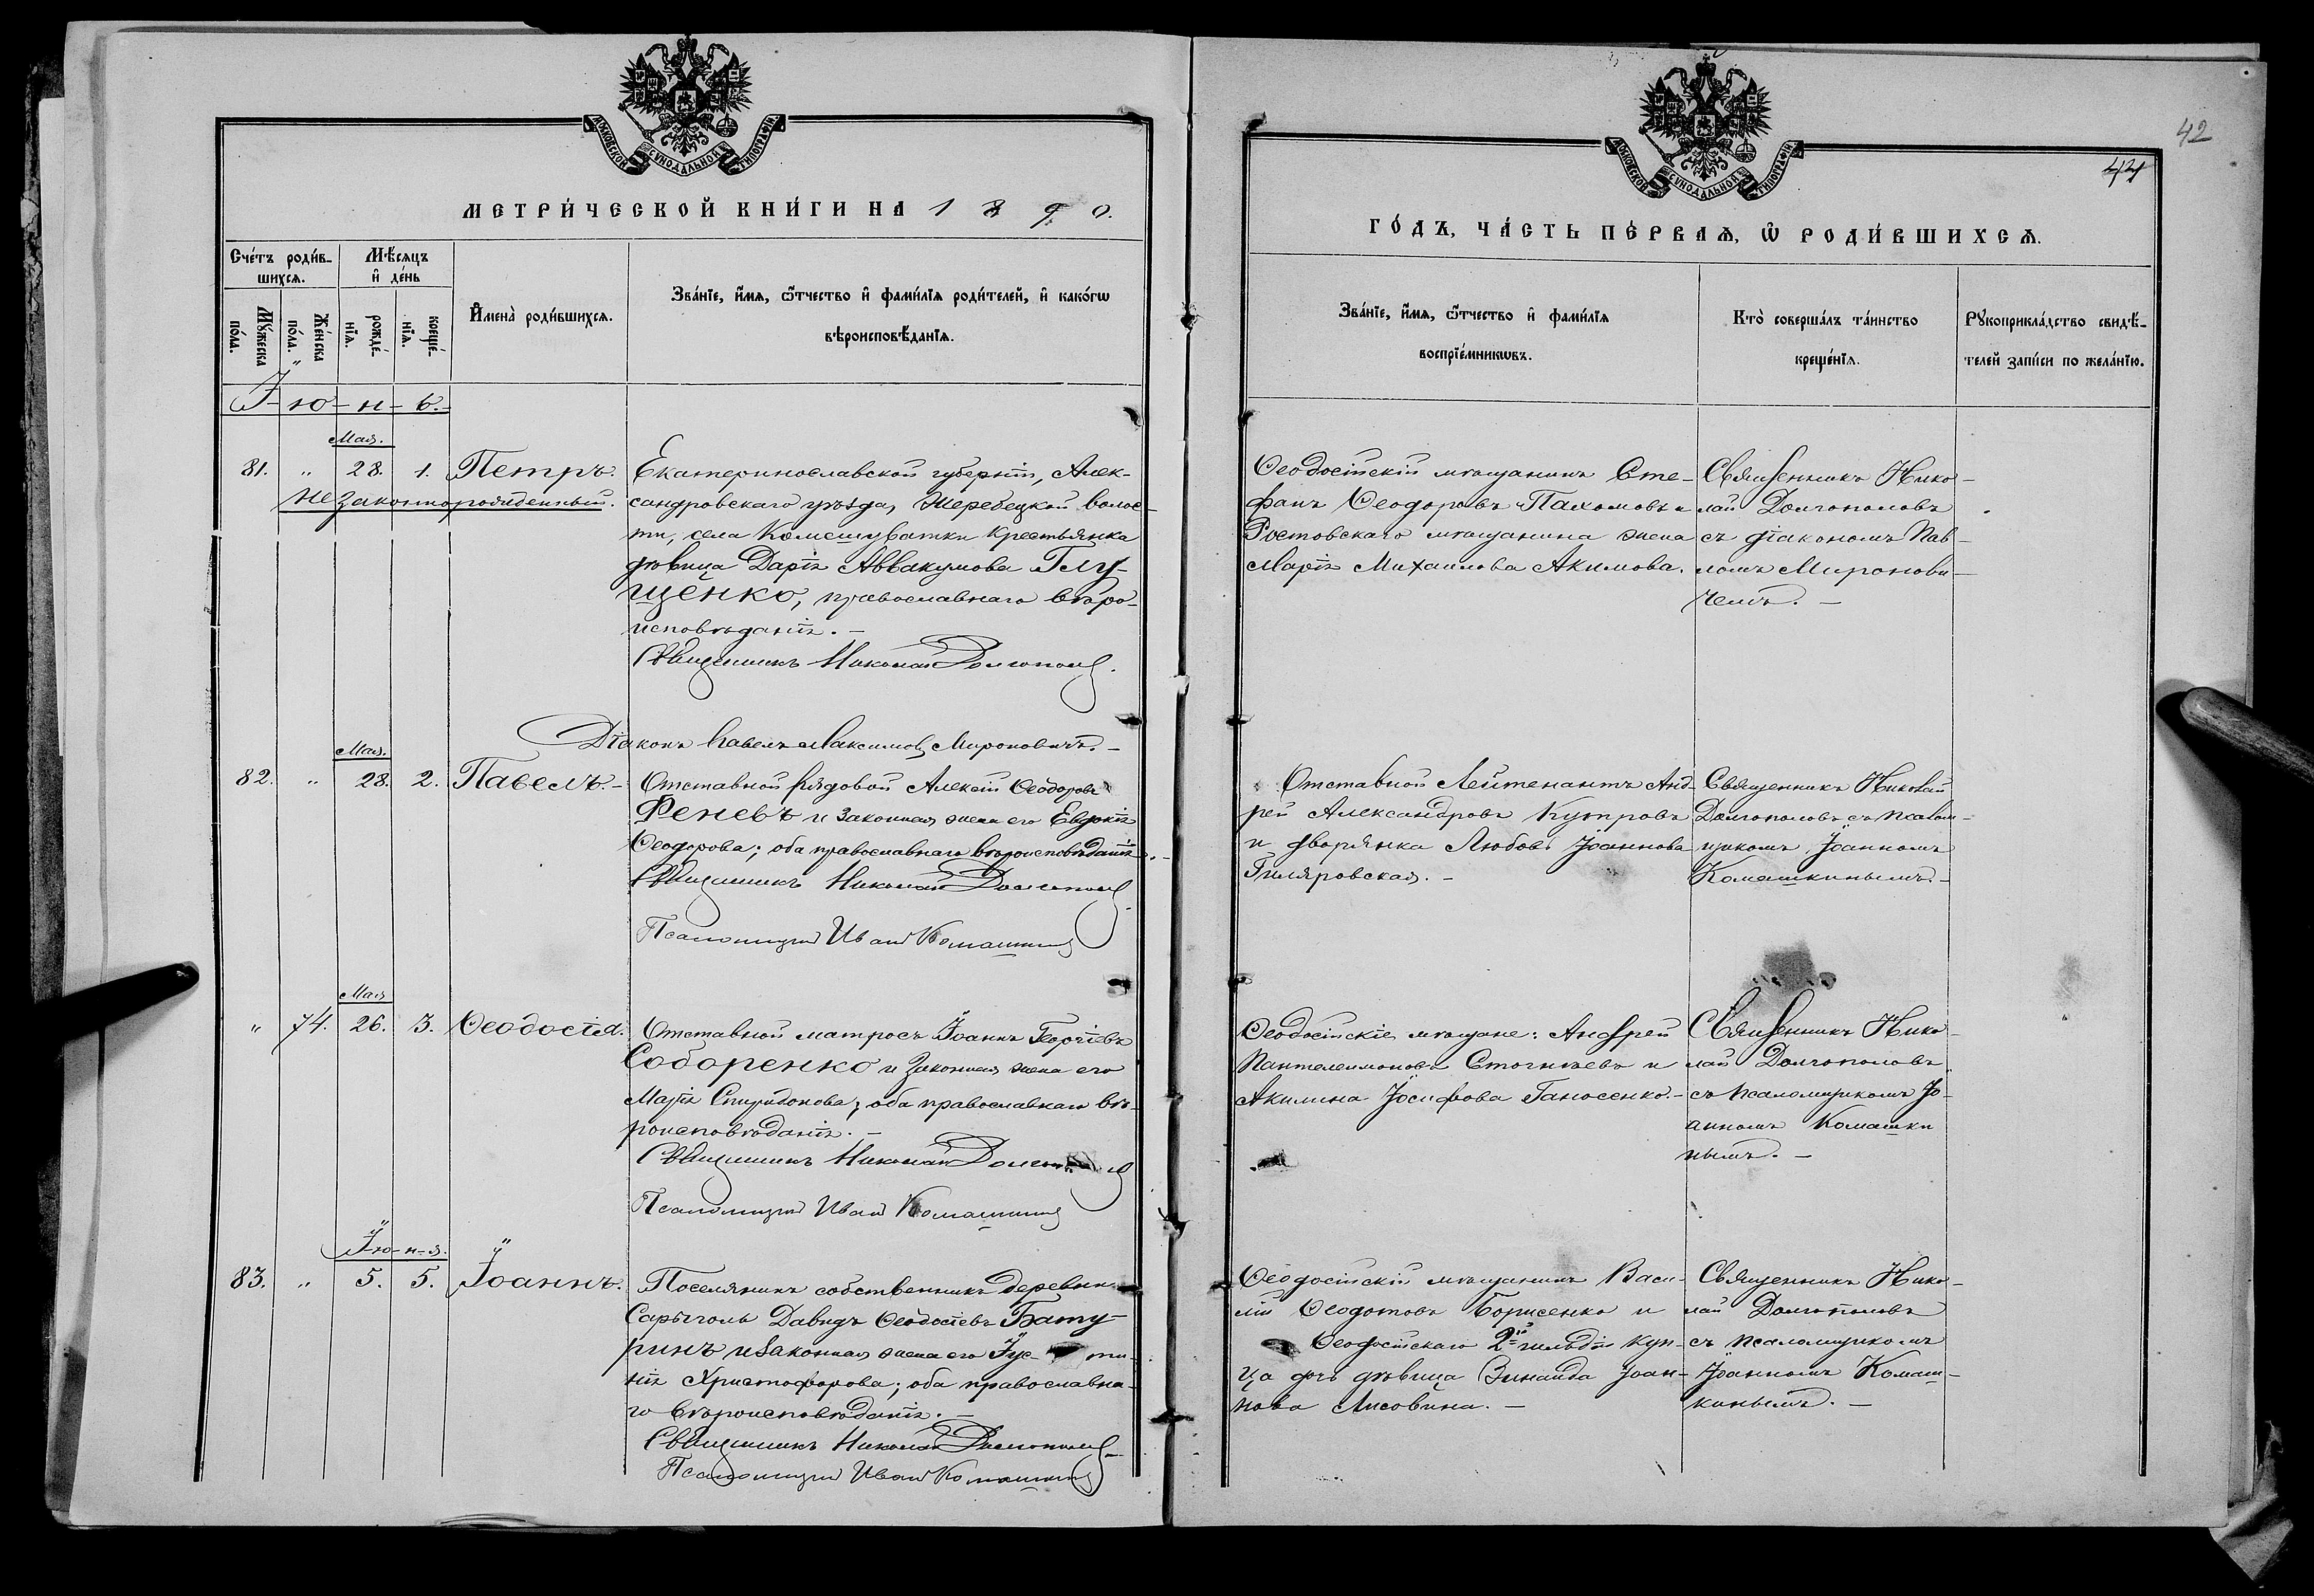 МОСКОВСКОЙ СѴНОДАЛЬНОЙ ТИПОГРАФІИ
МЕТРИ́ЧЕСКОЙ КНИ́ГИ НА 1890.
Сче́тъ роди́в-
шихсѧ.
Мѣ́сѧцъ
и҆ де́нь
Мꙋ́жеска
по́ла.
Же́нска
по́ла.
рожде́-
нїѧ.
креще́-
нїѧ.
И҆мена̀ роди́вшихсѧ.
Зва́нїе, и҆́мѧ, ѻ҆́тчество и҆ фами́лїѧ роди́телей, и҆ како́гѡ
вѣроисповѣ́данїѧ.
І-ю-н-ь.
Мая.
81. " 28. 1. Петръ.
незаконнорожденный.
Екатеринославской губерніи, Алек-
сандровскаго уѣзда, Жеребецкой волос-
ти, села Комешуватки крестьянка
дѣвица Дарія Аввакумова Глу-
щенко, православнаго вѣро-
исповѣданія. –
Священникъ Николай Долгополов.
Діаконъ Павелъ Максимов Мироновичъ. –
Мая.
82. " 28. 2. Павелъ. –
Отставной рядовой Алексій Ѳеодоровъ
Феневъ и законная жена его Евдокія
Ѳеодорова; оба православнаго вѣроисповѣданія. –
Священникъ Николай Долгополов
Псаломщик Иван Комашкин
Мая
" 74. 26. 3. Ѳеодосія.
Отставной матросъ Іоаннъ Георгіевъ
Соборенко и законная жена его
Марія Спиридонова; оба православнаго вѣ-
роисповѣданія. –
Священникъ Николай
Псаломщик Иван Комашкин
Ію-н-я.
83. " 5. 5. Іоаннъ.
Поселянинъ собственникъ деревни
Сарыголь Давидъ Ѳеодосіевъ Бату-
ринъ и законная жена его Іус- ти-
нія Христофорова; оба православна-
го вѣроисповѣданія. –
Священникъ Николай Долгополов
Псаломщик Иван Комашкин
МОСКОВСКОЙ СѴНОДАЛЬНОЙ ТИПОГРАФІИ
42
44
ГО́ДЪ, ЧА́СТЬ ПЕ́РВАѦ, Ѽ РОДИ́ВШИХСѦ.
Зва́нїе, и҆́мѧ, ѻ҆́тчество и҆ фами́лїѧ
воспрїе́мникѡвъ.
Кто̀ соверша́лъ та́инство
креще́нїѧ.
Рꙋкоприкла́дство свидѣ́-
телей за́писи по жела́нїю.
Ѳеодосійскій мѣщанинъ Сте-
фанъ Ѳеодоровъ Пахомовъ и
Ростовскаго мѣщанина жена
Марія Михаилова Акимова.
Священникъ Нико-
лай Долгополовъ
съ діакономъ Пав-
ломъ Миронови-
чемъ. –
Отставной Лейтенантъ Анд-
рей Александровъ Кутровъ
и дворянка Любовь Іоаннова
Гиляровская. –
Священникъ Николай
Долгополовъ съ псалом-
щикомъ Іоанномъ
Комашкинымъ. –
Ѳеодосійскіе мѣщане: Андрей
Пантелеимоновъ Стогніевъ и
Акилина Іосифова Ганосенко. –
Священникъ Нико-
лай Долгополовъ
съ псаломщикомъ Іо-
анномъ Комашки
нымъ. –
Ѳеодосійскій мѣщанинъ Васи-
лій Ѳеодотовъ Борисенко и
Ѳеодосійскаго 2й гильдіи куп-
ца дочь дѣвица Зинаида Іоан-
нова Лисовина. –
Священникъ Нико-
лай Долгополовъ
съ псаломщикомъ
Іоанномъ Комаш-
кинымъ. –